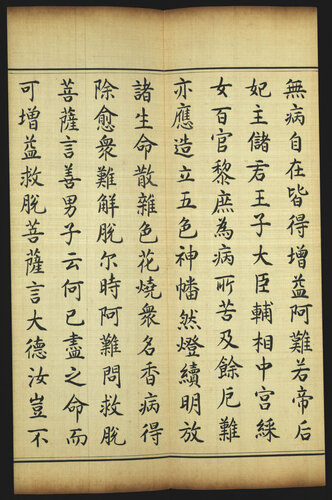 無病自在皆得增益阿難若帝后
妃主儲君王子大臣輔相中宮綵
女百官黎庶為病所苦及餘厄難
亦應造立五色神幡然燈續明放
諸生命散雜色花燒衆名香病得
除愈衆難解脫尔時阿難問救脫
菩薩言善男子云何已盡之命而
可增益救脫菩薩言大德汝豈不